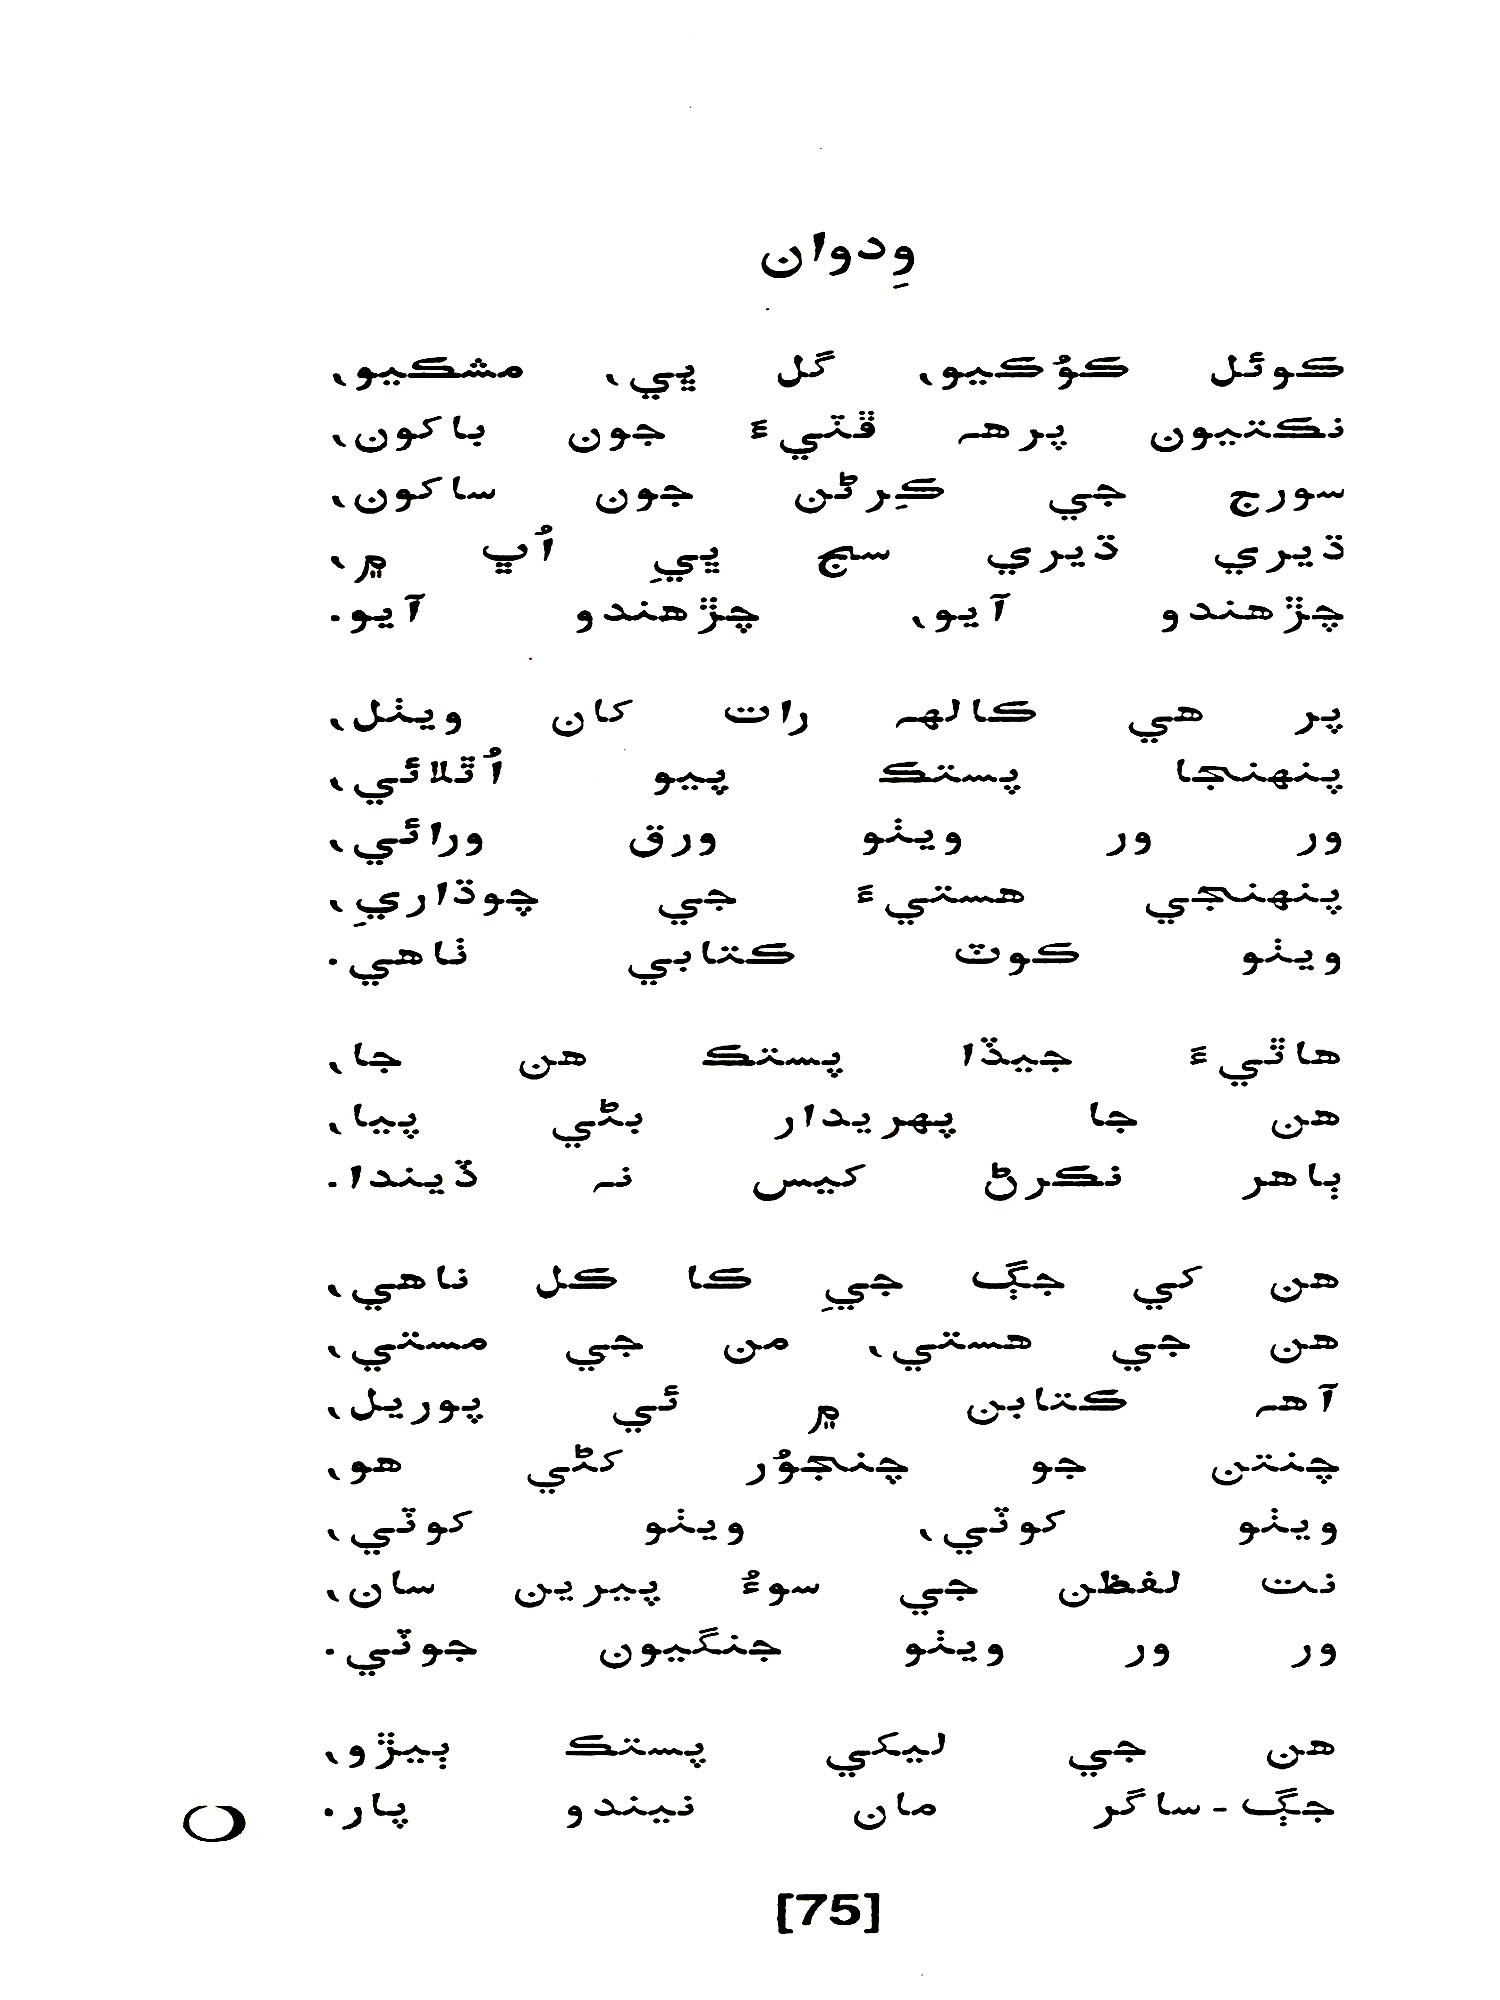 وِدوان
ڪوئل ڪوُڪيو، گل ڀي، مشڪيو،
نڪتيون پرھ ڦٽيءَ جون باکون،
سورج جي ڪِرڻن جون ساکون،
ڌيري ڌيري سڄ ڀيِ اُڀ ۾،
چڙهندو آيو، چڙهندو آيو.
پر هي ڪالهہ رات کان ويٺل،
پنهنجا پستڪ پيو اُٿلائي،
ور ور ويٺو ورق ورائي،
پنهنجي هستيءَ جي چوڌاريِ،
ويٺو ڪوٽ ڪتابي ٺاهي.
هاٿيءَ جيڏا پستڪ هن جا،
هن جا پهريدار بڻي پيا،
ٻاهر نڪرڻ کيس نہ ڏيندا.
هن کي جڳ جيِ ڪا ڪل ناهي،
هن جي هستي، من جي مستي،
آهہ ڪتابن ۾ ئي پوريل،
چنتن جو چنجوُر کڻي هو،
ويٺو کوٽي، ويٺو کوٽي،
نت لفظن جي سوءُ پيرين سان،
ور ور ويٺو جنگيون جوٽي.
هن جي ليکي پستڪ ٻيڙو،
جڳ-ساگر مان نيندو پار.
[75]